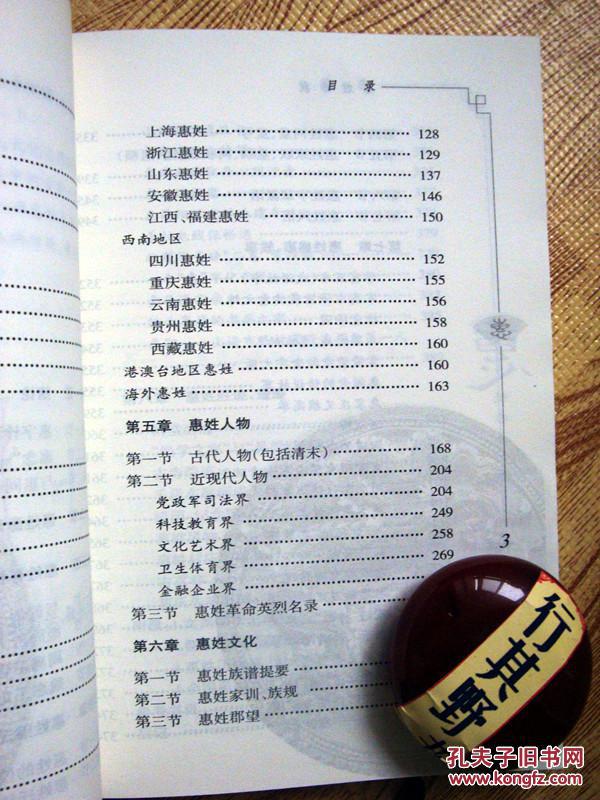 目 录
上海惠姓 128
浙江惠姓 129
山东惠姓 137
安徽惠姓 146
江西、福建惠姓 150
西南地区
四川惠姓 152
重庆惠姓 155
云南惠姓 156
贵州惠姓 158
西藏惠姓 160
港澳台地区惠姓 160
海外惠姓 163
第五章 惠姓人物
第一节 古代人物(包括清末) 168
第二节 近现代人物 204
党政军司法界 204
科技教育界 249
文化艺术界 258
卫生体育界 269
金融企业界
第三节 惠姓革命英烈名录
第六章 惠姓文化
第一节 惠姓族谱提要
第二节 惠姓家训、族规
第三节 惠姓郡望
3
行其野
孔夫子旧书网
www.kongfz.com